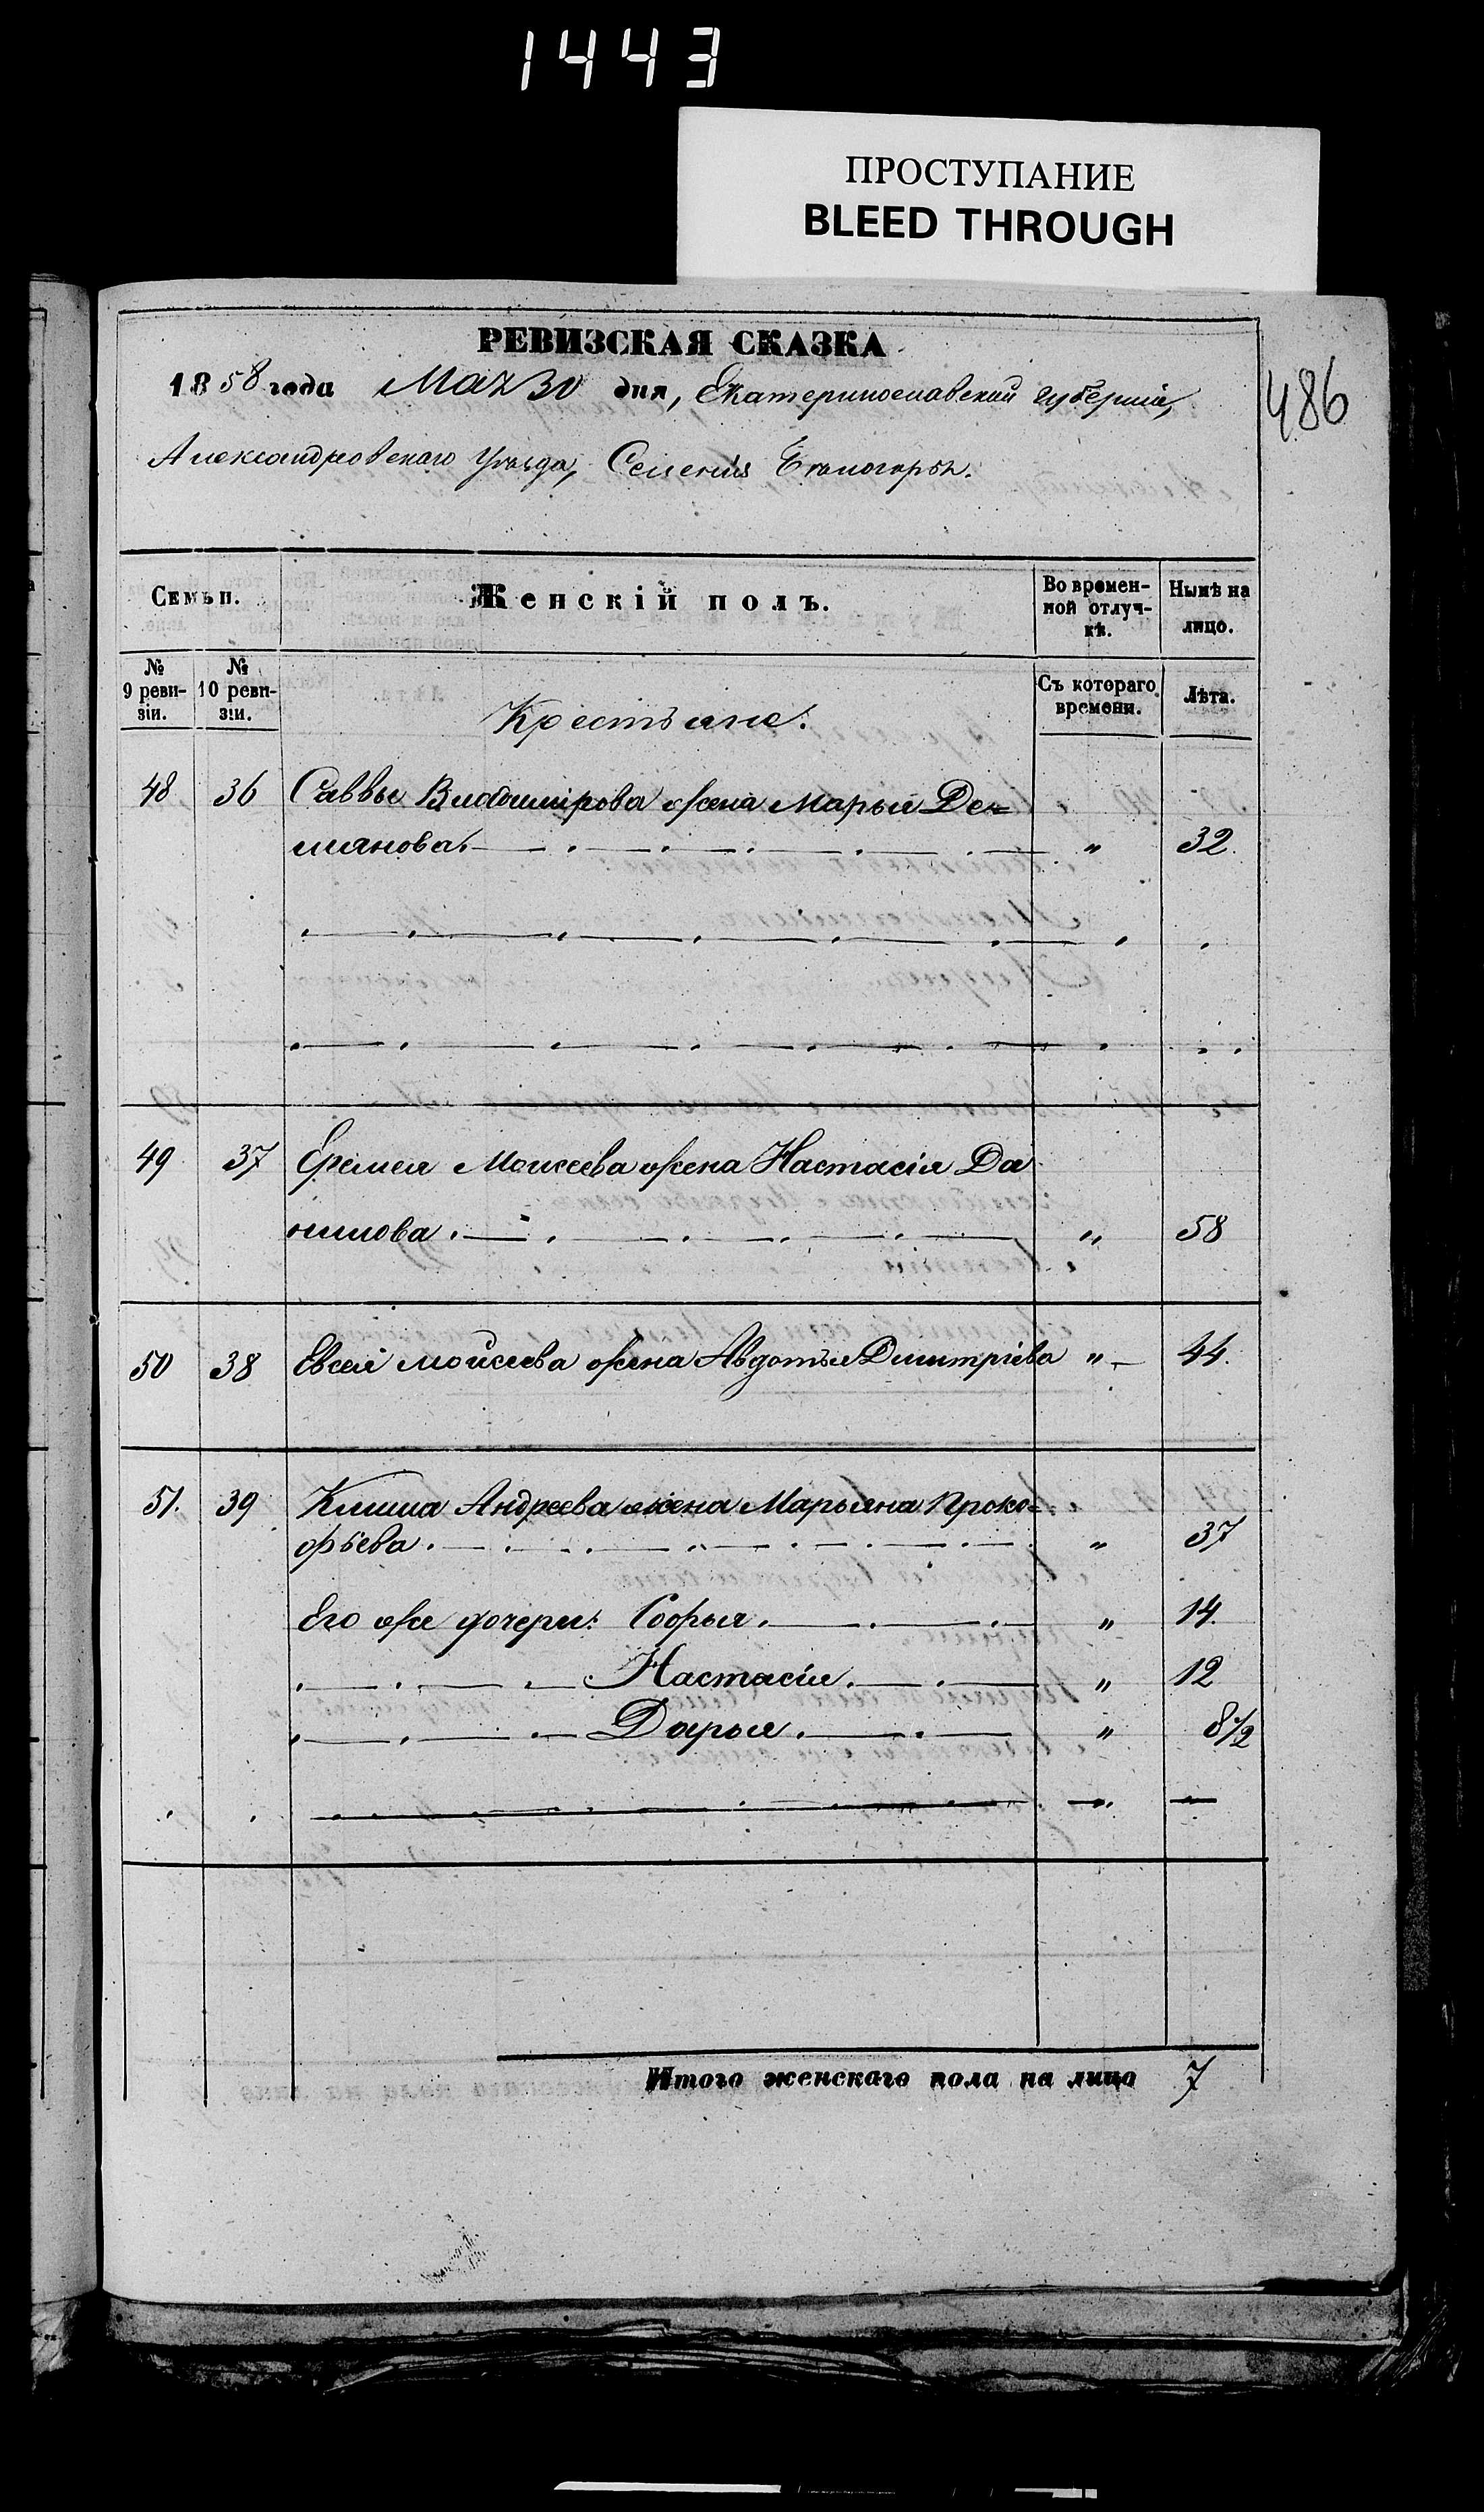 1443
ПРОСТУПАНИЕ
BLEED THROUGH
РЕВИЗСКАЯ СКАЗКА
1858 года Мая 30 дня, Екатеринославской губерніи,
486
Александровскаго Уѣзда, Селенія
Семьи.
Женскій полъ.
Во времен-
ной отлуч-
кѣ.
Нынѣ на
лицо.
№ 9 реви-
зіи.
№ 10 реви-
зіи.
Съ котораго
времени.
Лѣта.
Крестьяне.
48 36 Саввы Владимірова жена Марья Де=
мянова. " 32.
49 37 Еремея Моисеева жена Настасія Да
нилова. " 58
50 38 Евсея Моисеева жена Авдотья Дмитріева " 44.
51. 39 Клима Андреева жена Марьяна Проко=
фьева. " 37
Его же дочери: Софья. " 14.
Настасія. " 12
Дарья. " 8 1/2
Итого женскаго пола на лицо 7